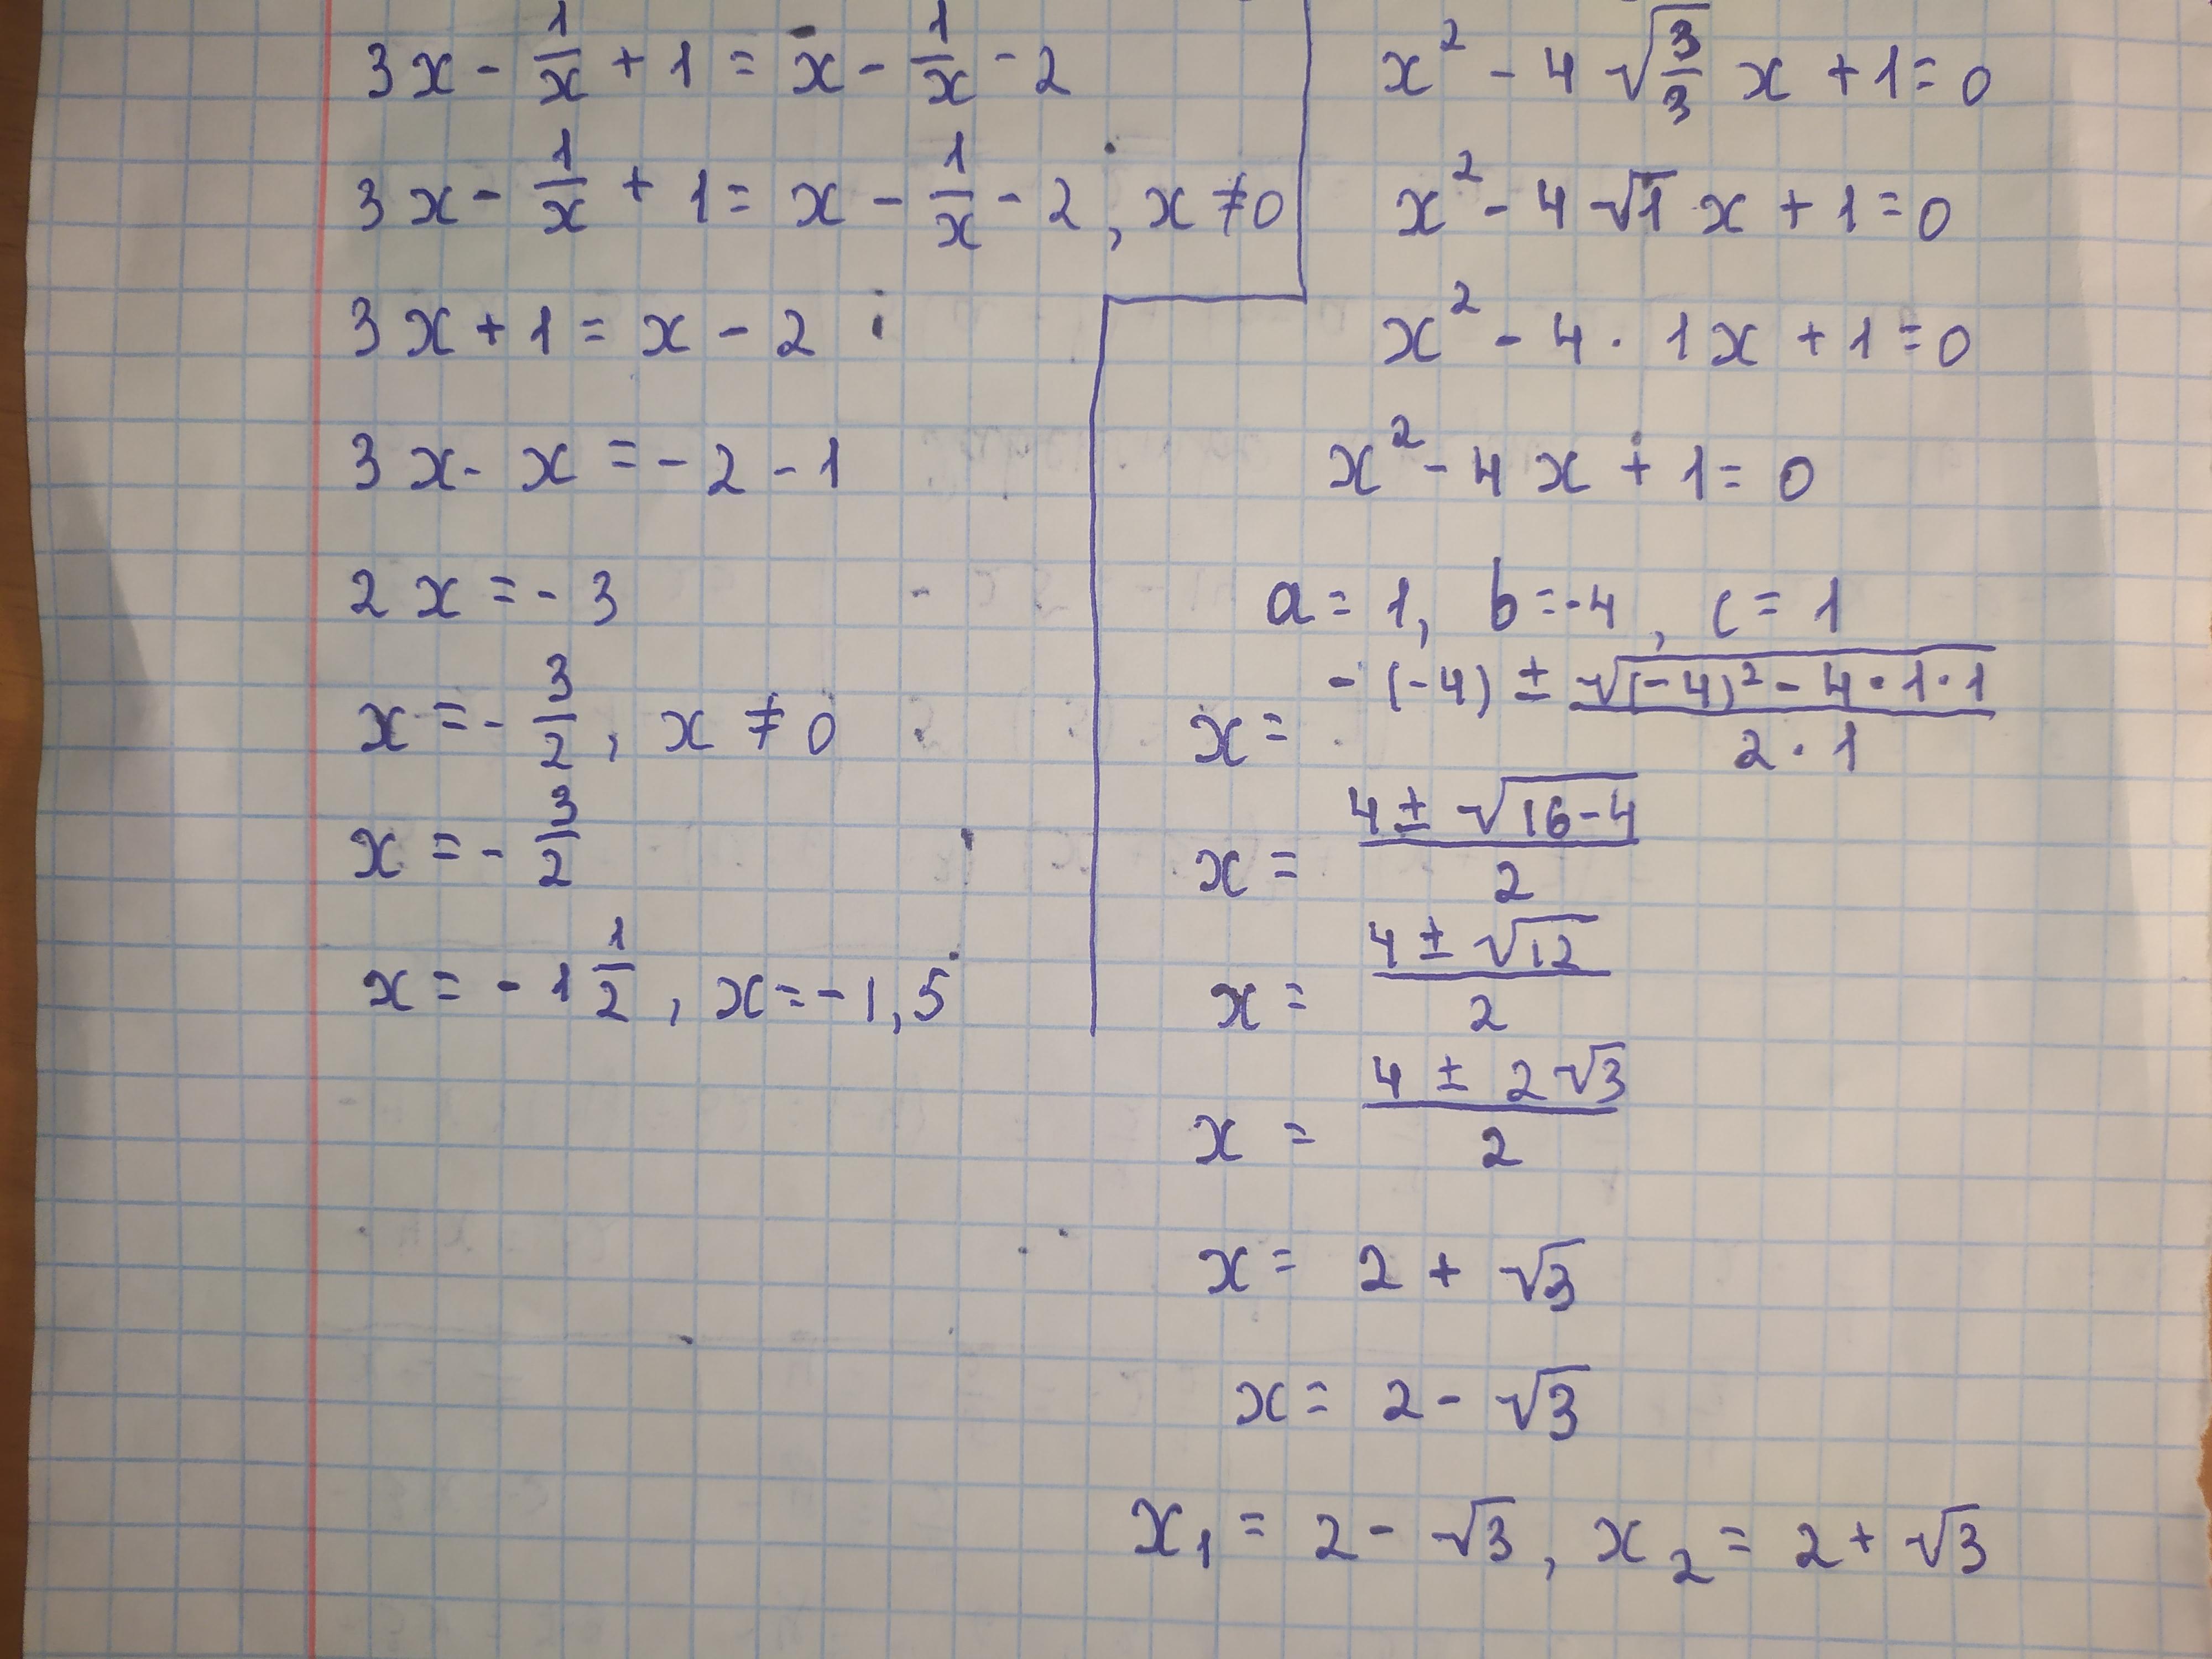 3x - 1/x + 1 = x - 1/x - 2
3x - 1/x + 1 = x - 1/x - 2, x ≠ 0
3x + 1 = x - 2
3x - x = -2 - 1
2x = -3
x = -3/2, x ≠ 0
x = -3/2
x = -1 1/2, x = -1,5
x² - 4√(3/3) x + 1 = 0
x² - 4√1 x + 1 = 0
x² - 4 · 1x + 1 = 0
x² - 4x + 1 = 0
a = 1, b = -4, c = 1
x = (-(-4) ± √((-4)² - 4·1·1))/(2·1)
x = (4 ± √(16-4))/2
x = (4 ± √12)/2
x = (4 ± 2√3)/2
x = 2 + √3
x = 2 - √3
x₁ = 2 - √3, x₂ = 2 + √3